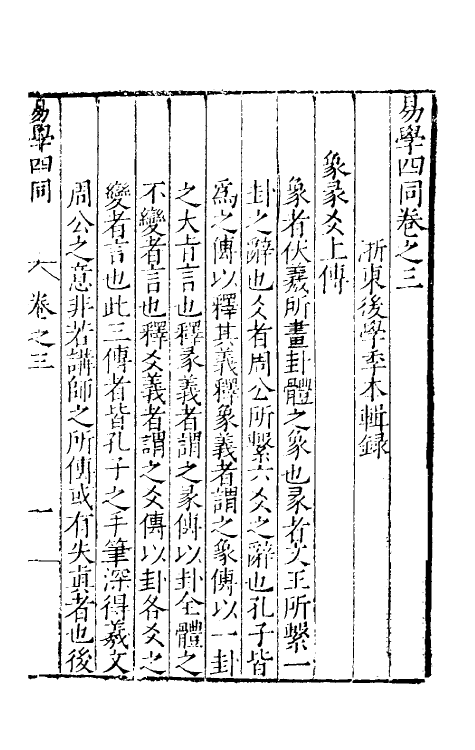 易學四同卷之三
浙東後學季本輯録
象彖爻上傳
象者伏羲所畫卦體之象也彖者文王所繫一
卦之辭也爻者周公所繫六爻之辭也孔子皆
爲之傳以釋其義釋象義者謂之象傳以一卦
之大肯言也釋彖義者謂之彖傳以卦全體之
不變者言也釋爻義者謂之爻傳以卦各爻之
變者言也此三傳者皆孔子之手筆深得羲文
周公之意非若講師之所傳或有失眞者也後
易學四同
卷之三
一